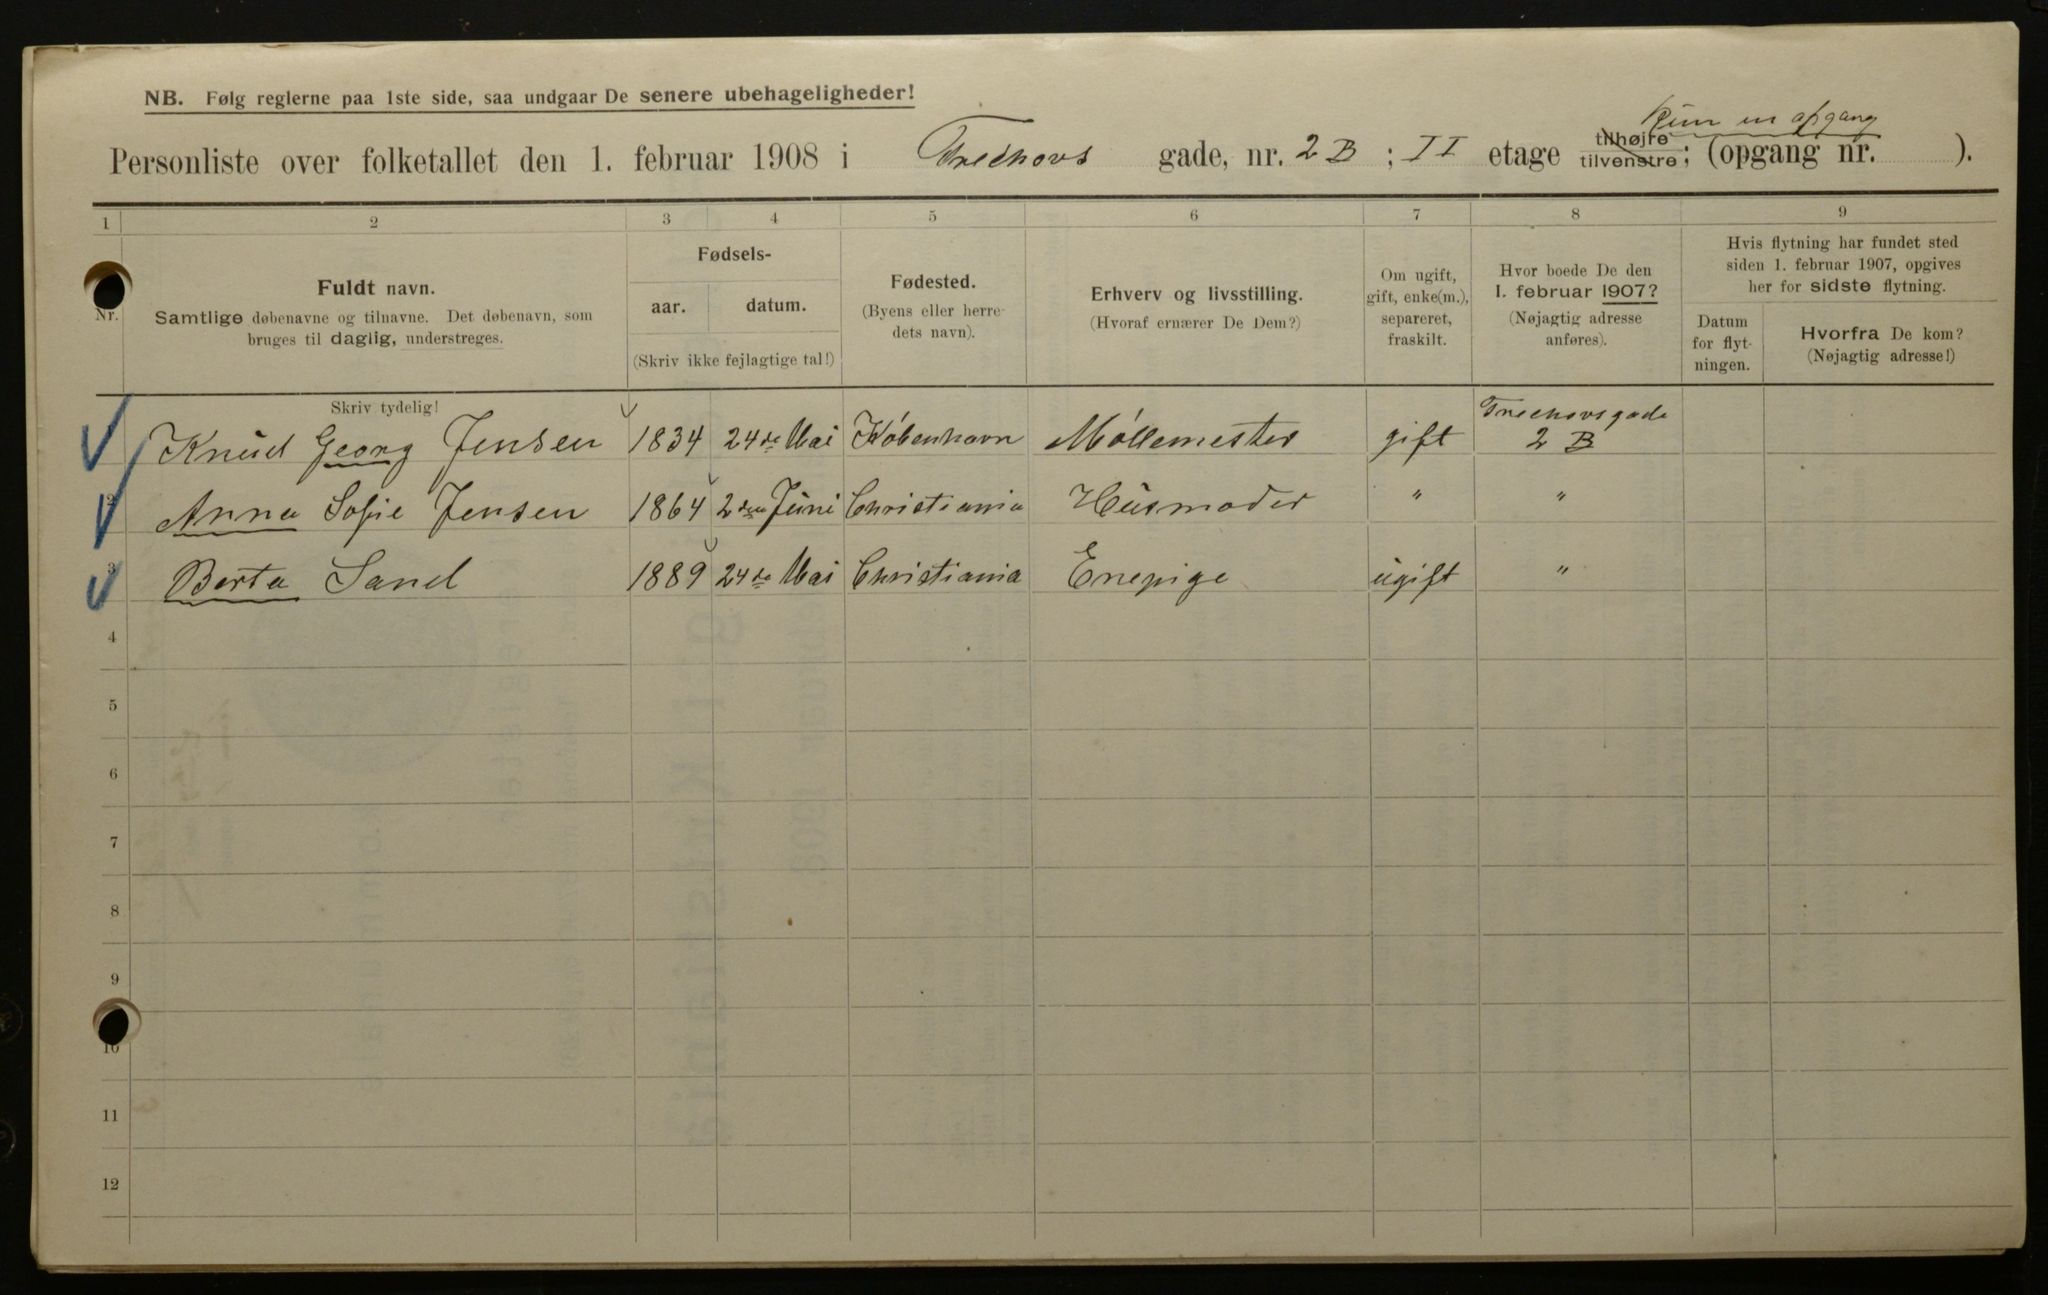 NB. Følg reglerne paa 1ste side, saa undgaar De senere ubehageligheder!
Kun en opgang
Personliste over folketallet den 1. februar 1908 i Treschows gade, nr. 2 B ; II etage tilhøjre tilvenstre ; (opgang nr. ).
1 2 3 4 5 6 7 8 9
Nr.
Fuldt navn.
Samtlige døbenavne og tilnavne. Det døbenavn, som
bruges til daglig, understreges.
Skriv tydelig!
Fødsels-
aar. datum.
(Skriv ikke fejlagtige tal!)
Fødested.
(Byens eller herre-
dets navn).
Erhverv og livsstilling.
(Hvoraf ernærer De Dem?)
Om ugift,
gift, enke(m.),
separeret,
fraskilt.
Hvor boede De den
1. februar 1907?
(Nøjagtig adresse
anføres).
Hvis flytning har fundet sted
siden 1. februar 1907, opgives
her for sidste flytning.
Datum
for flyt-
ningen.
Hvorfra De kom?
(Nøjagtig adresse!)
Knud Georg Jensen 1834 24de Mai København Møllemester gift Treschovsgade
2 B
2 Anna Sofie Jensen 1864 2den Juni Christiania Husmoder " "
3 Berta Sand 1889 24de Mai Christiania Enepige ugift "
4
5
6
7
8
9
10
11
12